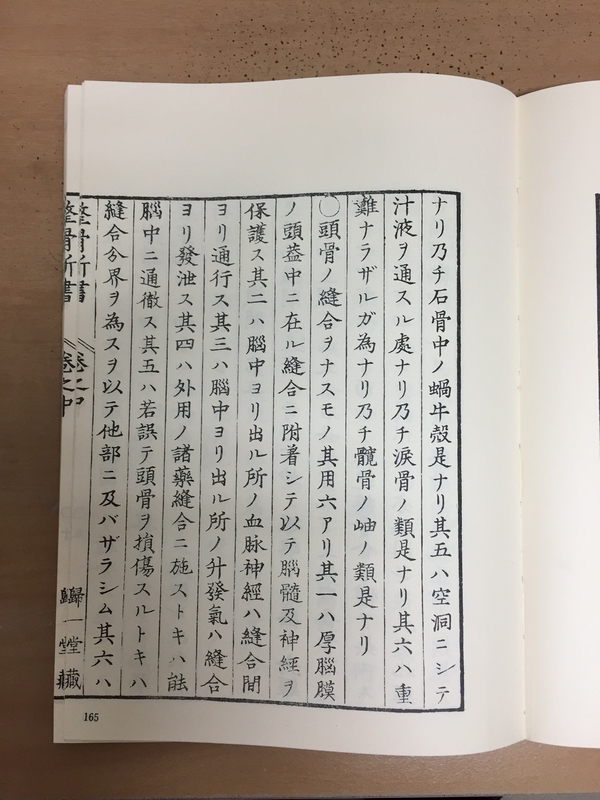 ナリ乃チ石骨中ノ蝸牛殻是ナリ其五ハ空洞ニシテ
汁液ヲ通スル處ナリ乃チ淚骨ノ類是ナリ其六ハ重
難ナラザルガ為ナリ乃チ髖骨ノ岫ノ類是ナリ
〇頭骨ノ縫合ヲナスモノ其用六アリ其一ハ厚腦膜
ノ頭蓋中ニ在ル縫合ニ附着シテ以テ腦髓及神經ヲ
保護ス其二ハ腦中ヨリ出ル所ノ血脉神經ハ縫合間
ヨリ通行ス其三ハ腦中ヨリ出ル所ノ升發氣ハ縫合
ヨリ發泄ス其四ハ外用ノ諸藥縫合ニ施ストキハ能
腦中ニ通徹ス其五ハ若誤テ頭骨ヲ損傷スルトキハ
縫合分界ヲ為スヲ以テ他部ニ及バザラシム其六ハ
整骨新書 卷之中 歸一堂藏
165